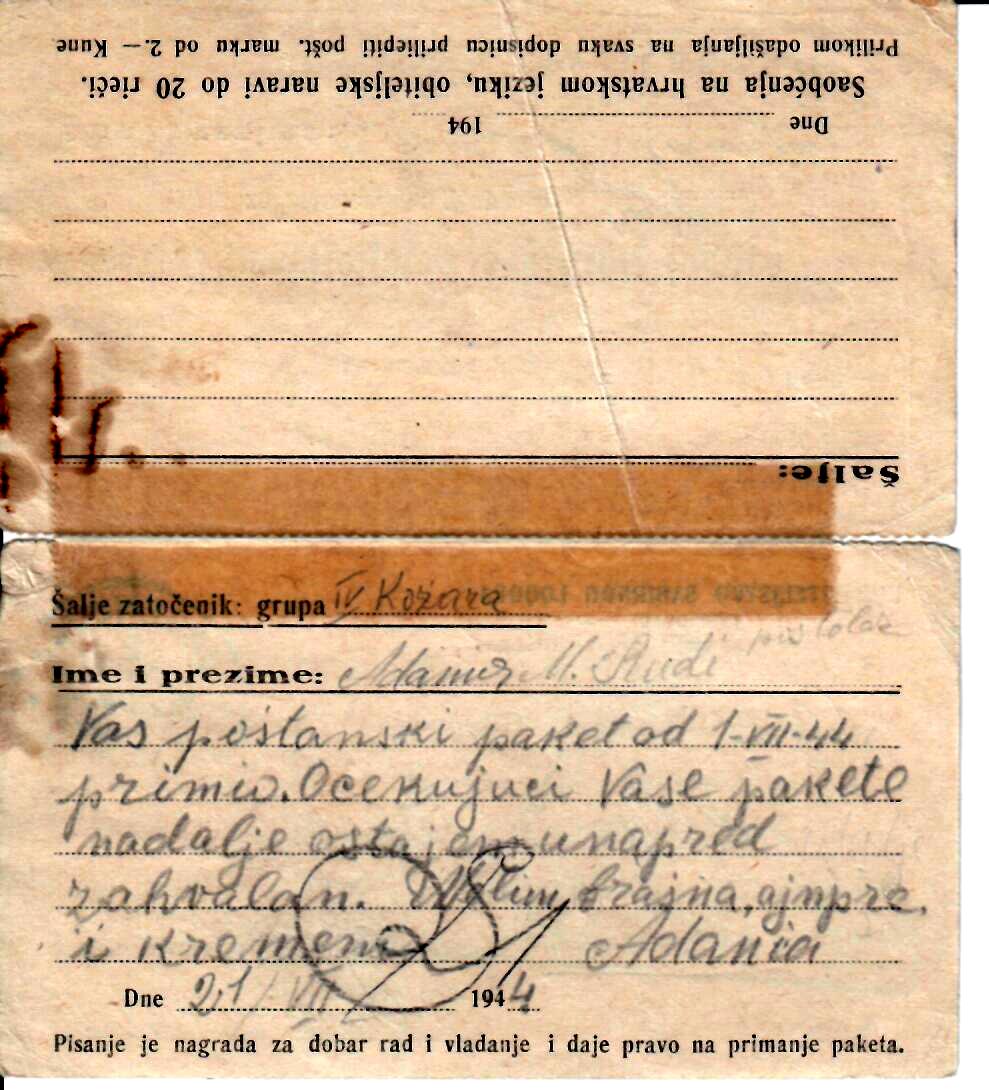 Prilikom odašiljanja na svaku dopisnicu priliepiti pošt. marku od 2.— Kune
Saobćenja na hrvatskom jeziku, obiteljske naravi do 20 rieči.
Dne 194
Šalje:
Šalje zatočenik: grupa IV Kožara
Ime i prezime: M. Rudi
Vas poštanski paket od 1-VII-44
primio. Ocekujuci Vase pakete
nadalje ostajem unapred
zahvalan. brasna,
i kremen
Dne 21/VII 1944
Pisanje je nagrada za dobar rad i vladanje i daje pravo na primanje paketa.